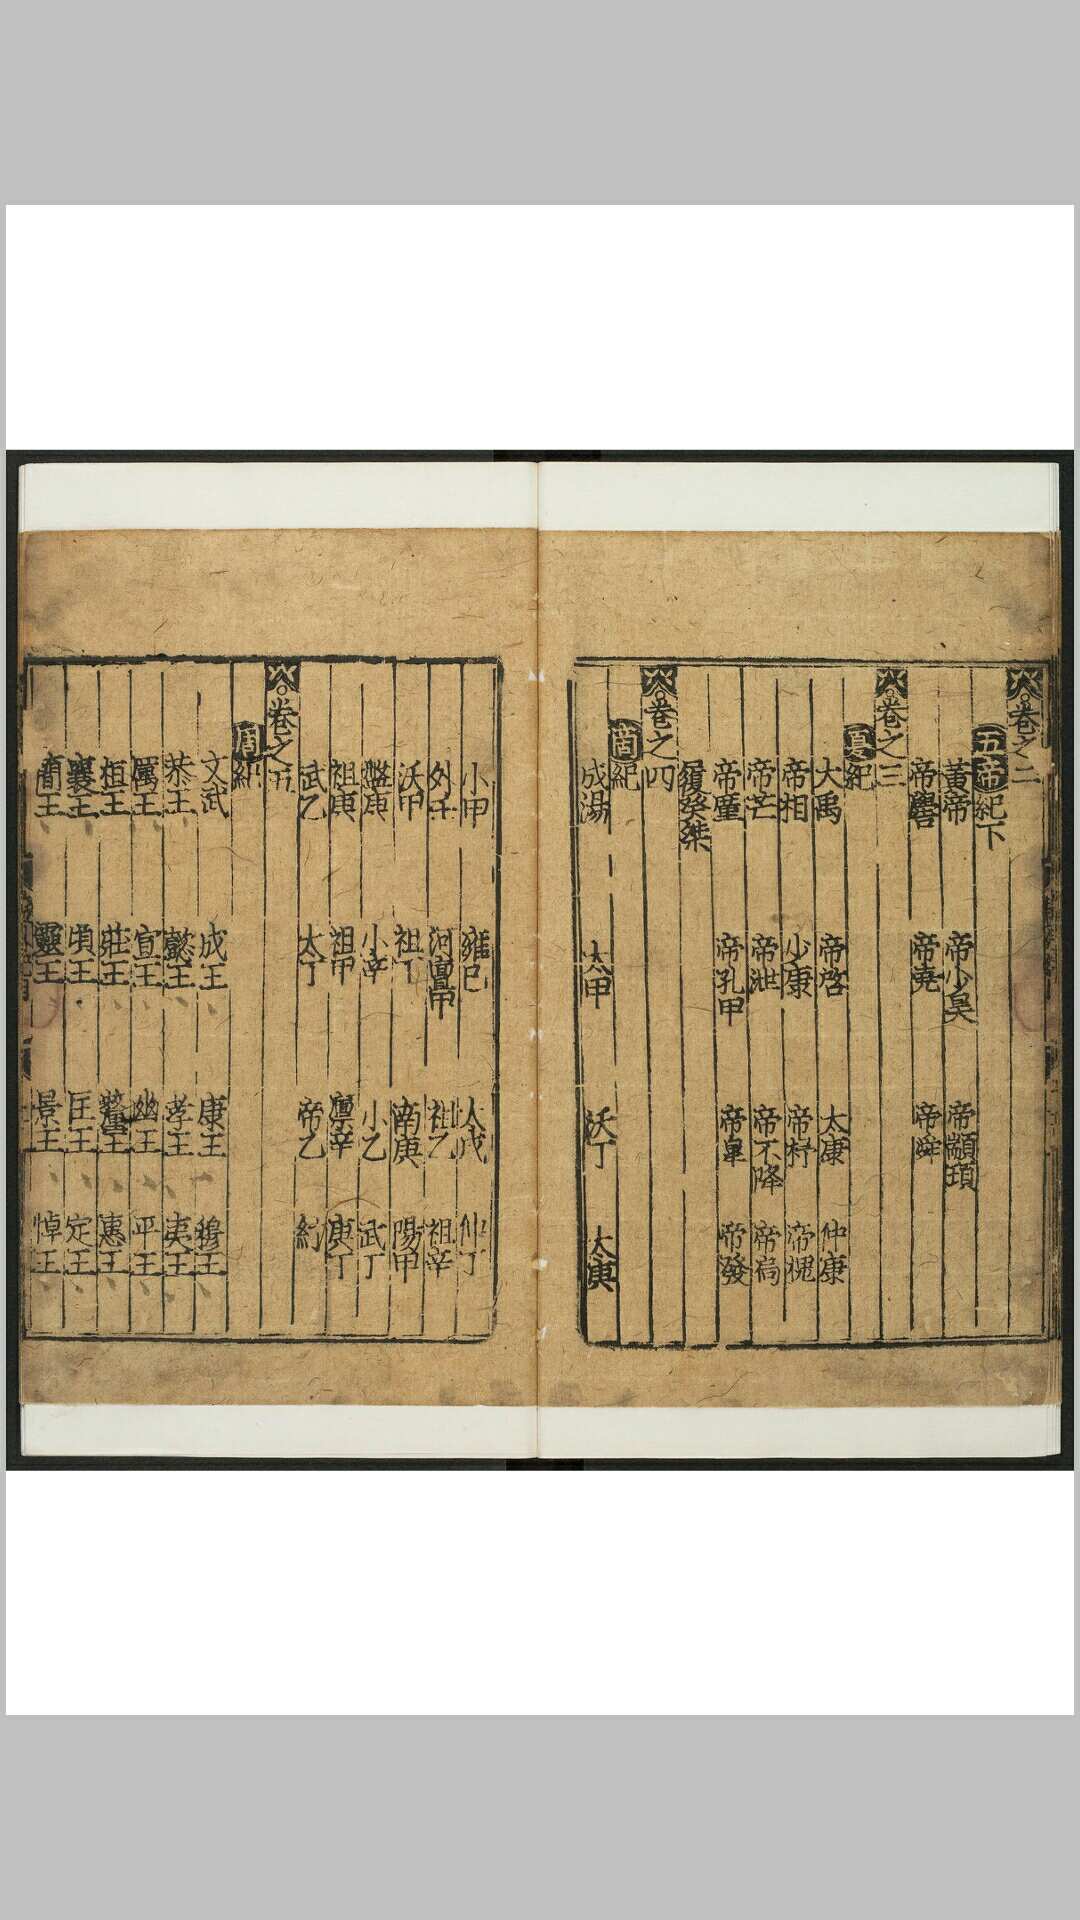 卷之二
五帝紀下
黃帝 帝少昊 帝顓頊
帝嚳 帝堯 帝舜
卷之三
夏紀
大禹 帝啓 太康 仲康
帝相 少康 帝杼 帝槐
帝芒 帝泄 帝不降 帝扃
帝廑 帝孔甲 帝皐 帝發
履癸桀
卷之四
啇紀
成湯 太甲 沃丁 太庚
小甲 雍巳 太戊 仲丁
外壬 河亶甲 祖乙 祖辛
沃甲 祖丁 南庚 陽甲
盤庚 小辛 小乙 武丁
祖庚 祖甲 廩辛 庚丁
武乙 太丁 帝乙 紂
卷之五
周紀
文武 成王 康王 穆王
恭王 懿王 孝王 夷王
厲王 宣王 幽王 平王
桓王 莊王 釐王 惠王
襄王 頃王 匡王 定王
簡王 靈王 景王 悼王